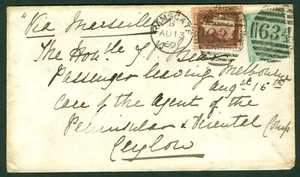 "Via Marseilles
RAMSGATE
AU 13
60
634
634
The Honble
Passenger leaving Melbourne
Augst 16th
Care of the Agent of the
Peninsular & Oriental Comp
Ceylon